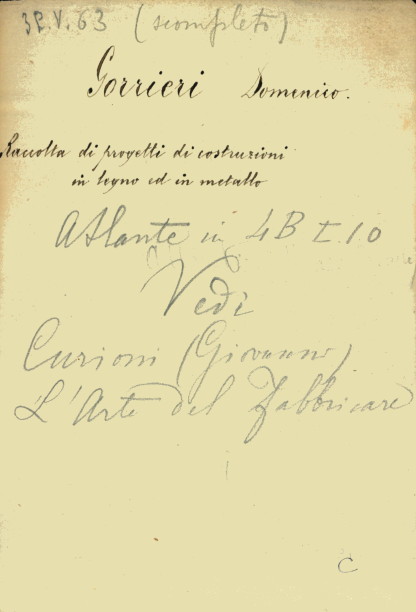 3P.V.63 (scompleto)
Gorrieri Domenico.
Raccolta di progetti di costruzioni
in legno ed in metallo
Atlante in 4B I 10
Vedi
Curioni (Giovanni)
L'Arte del Fabbricare
C